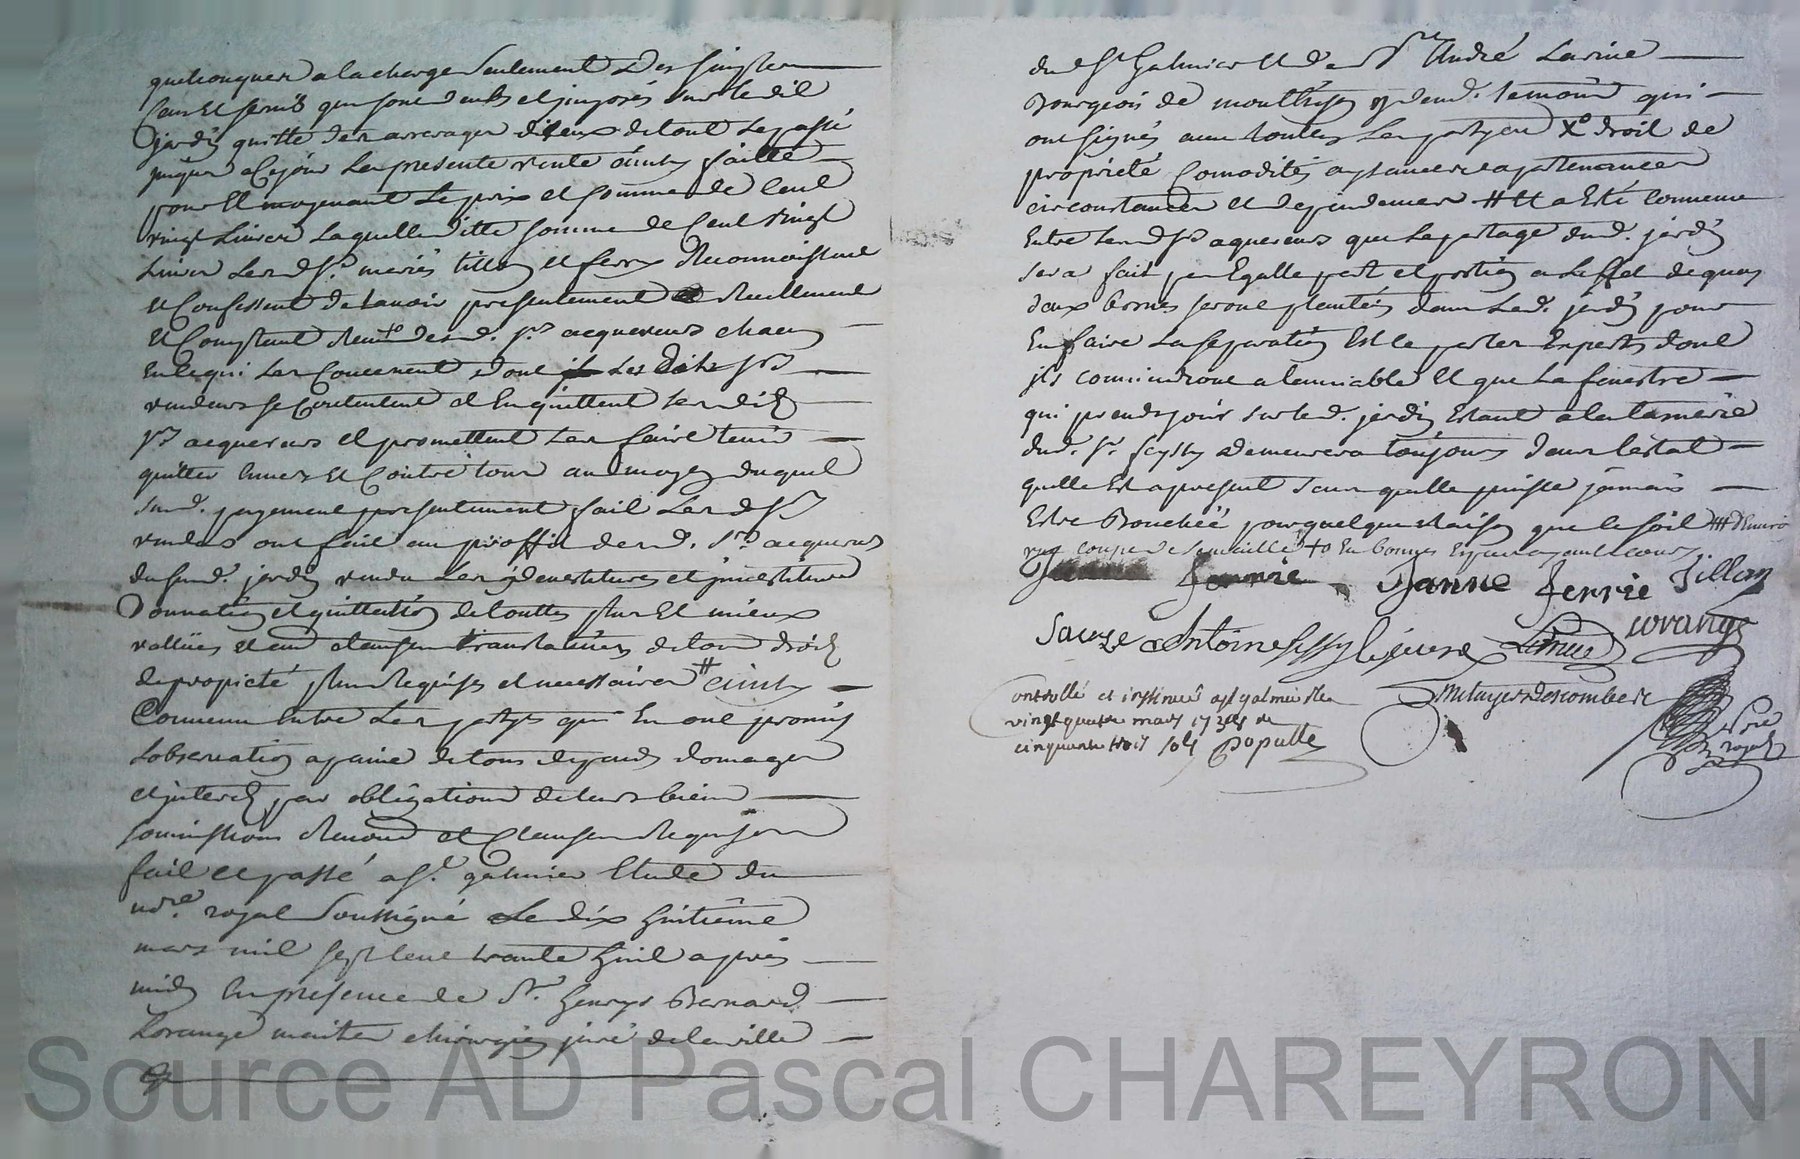 quelconques a la charge seulement des simples
Cens et servis qui sont deubs et imposés sur ledit
jardin quitte des arrerages d'iceux de tout le passé
jusques a ce jour la presente vente ainsy faitte
pour et moyenant le prix et somme de Cent
vingt Livres laquelle ditte somme de Cent vingt
Livres lesd. Srs mariés tillon et ferrie Reconnoissent
et Confessent de lavoir presentement Reellement
et Comptant Receu desd. Srs acquereurs chacun
en ce qui les Concernent dont les dits Srs
vendeurs se Contentent et En quittent lesdits
Srs acquereurs et promettent les faire tenir
quittes Envers et Contre tous au moyen duquel
susd. payement presentement fait lesd. Srs
vendeurs ont fait au proffit desd. Srs acquereurs
du susd. jardin vendu les devestitures et investitures
Donnation et quittation de touttes plus et mieux
vallües et aud clauses translatives de tous droits
de propieté plus Requises et necessaires # ainsy
Convenu Entre les partyes qui En ont promis
Lobservation a paine de tous depends domages
et interets par obligations de leurs biens
soumissions Renond et Clauses Requises
fait et passé a St. galmier Etude du
nore. royal soussigné Le dix huitième
mars mil sept cent trante huit après
midy En presence de Sr. henrys Bernard
Lorange maitre chirurgien juré de la ville
du St Galmier et de Sr André Larive
Bourgeois de d. temoins qui
ont signés avec touttes les partyes X° droit de
propriété Comodités aysances et apartenances
circonstances et dependences # Et a Esté Convenu
Entre lesd Srs aquereurs que le partage dud. jardin
sera fait par Egalle part et portion a Leffet de quoy
deux bornes seront plantées dans led. jardin pour
En faire la separation Et ce par les Experts dont
ils conviendront a lamiable Et que La fenestre
qui prends jour sur led. jardin Estant a la
dud. Sr. demeurera toujours dans lestat
quelle Est a present sans quelle puisse jamais
Estre Bouchée pour quelque Raison que ce soit
+o En bonnes Especes ayant cours
ferrie Janne ferrie Tillon
Sauze Antoine Larive Lorange
Controllé et insinué a St galmier le
vingt quatre mars 1738 Re
cinquante trois sols populle
Source AD Pascal CHAREYRON